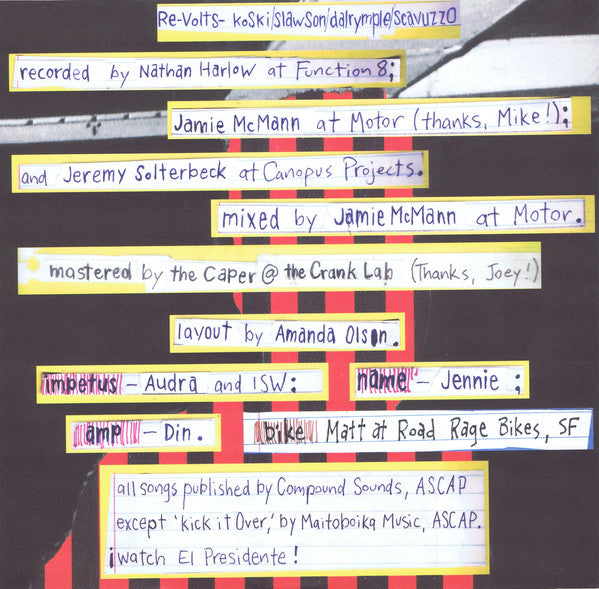 Re-Volts- koski/slawson/dalrymple/scavuzzo
recorded by Nathan Harlow at Function 8;
Jamie McMann at Motor (thanks, Mike!);
and Jeremy Solterbeck at Canopus Projects.
mixed by Jamie McMann at Motor.
mastered by the Caper @ the Crank Lab (Thanks, Joey!)
layout by Amanda Olson.
impetus - Audra and ISW;
name - Jennie ;
amp - Din.
bike Matt at Road Rage Bikes, SF
all songs published by Compound Sounds, ASCAP
except 'kick it Over,' by Maitoboika Music, ASCAP.
¡watch El Presidente!